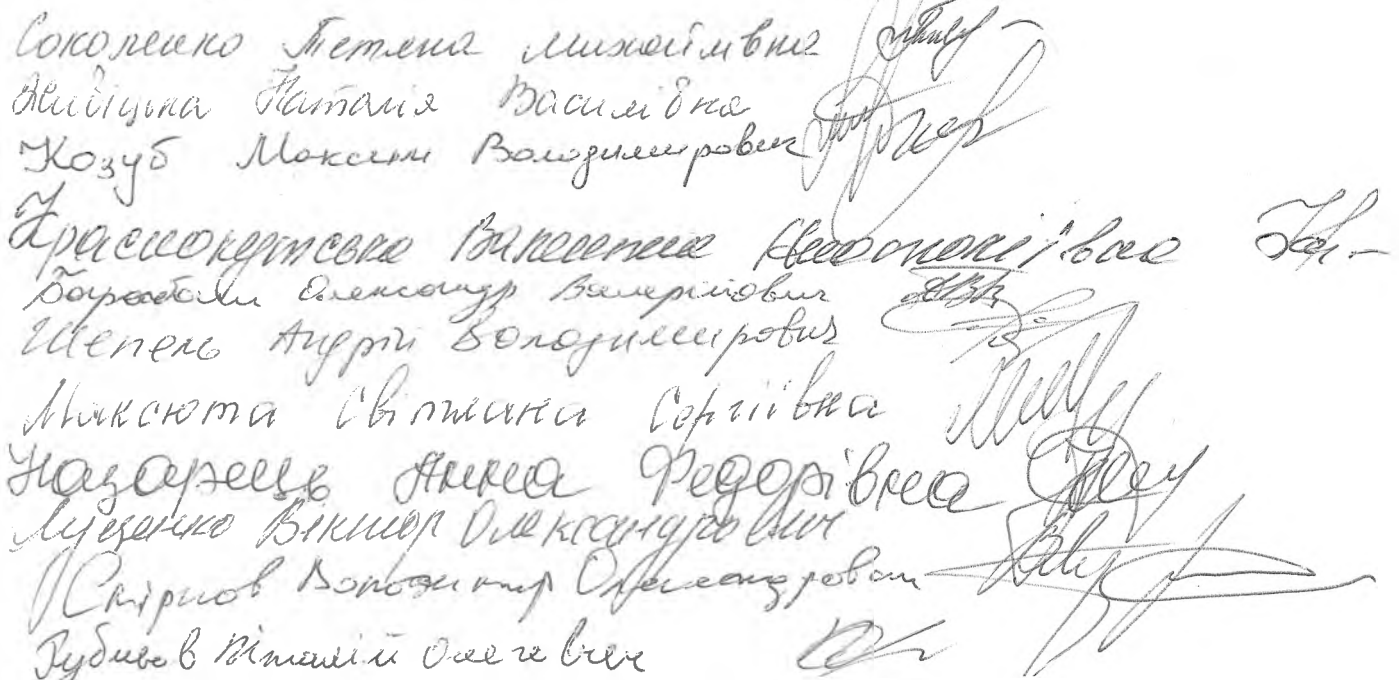 Соколенко Тетяна Михайлівна
Наталія Василівна
Козуб Максим Володимирович
Краснокутська Валентина Анатоліївна
Барабаш Олександр Валерійович
Шепель Андрій Володимирович
Максюта Світлана Сергіївна
Назарець Анна Федорівна
Луценко Віктор Олександрович
Смірнов Володимир Олександрович
Рубцов Віталій Олегович